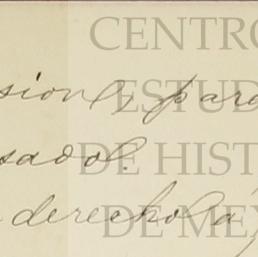 CENTRO
ESTUD
DE HIST
DE MÉX
para
sado.
derecho á